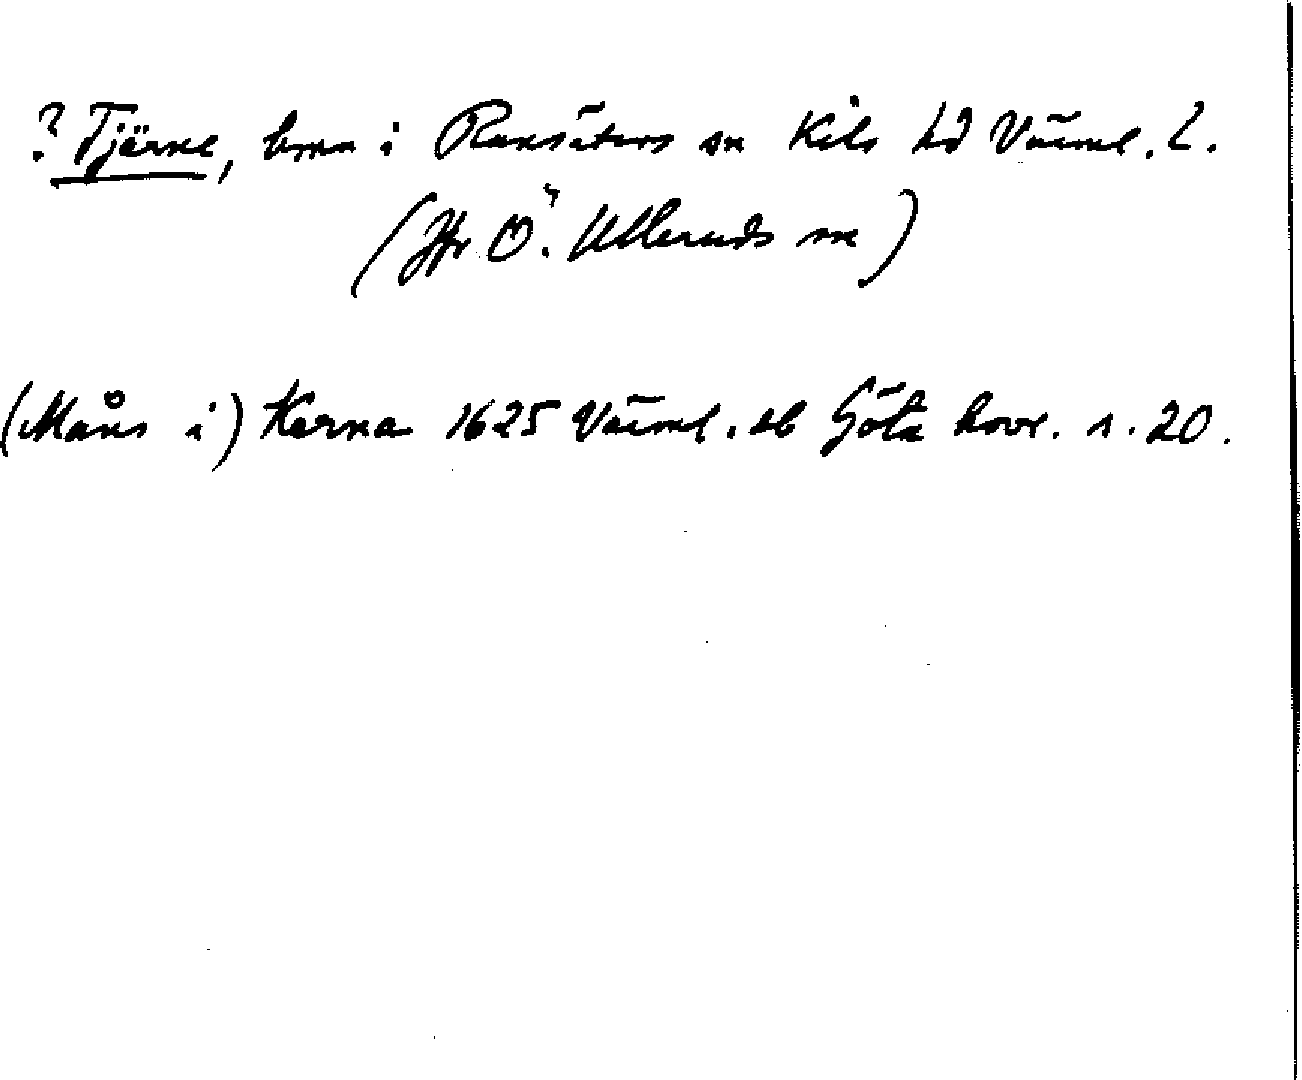 ? Tjärne, hmn i Ransäters sn Kils hd Värml. l.
(Jfr Ö. Ulleruds sn)
(Måns i) Kerna 1625 Värml. hb Göta hovr. s. 20.